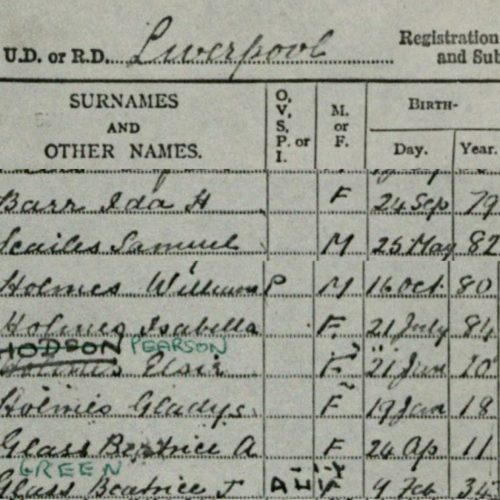 U.D. or R.D. Liverpool Registration
and Sub
SURNAMES AND OTHER NAMES. O, V, S, P, or I. M. or F. BIRTH-
Day. Year.
Barr Ida H F 24 Sep 79
Scailes Samuel M 25 May 82
Holmes William P M 16 Oct 80
Holmes Isabella F 21 July 84
HODSON PEARSON
Holmes Elsie F 21 Jun 10
Holmes Gladys F 19 Jan 18
Glass Beatrice A F 24 Ap 11
GREEN
Glass Beatrice J F 9 Feb 34